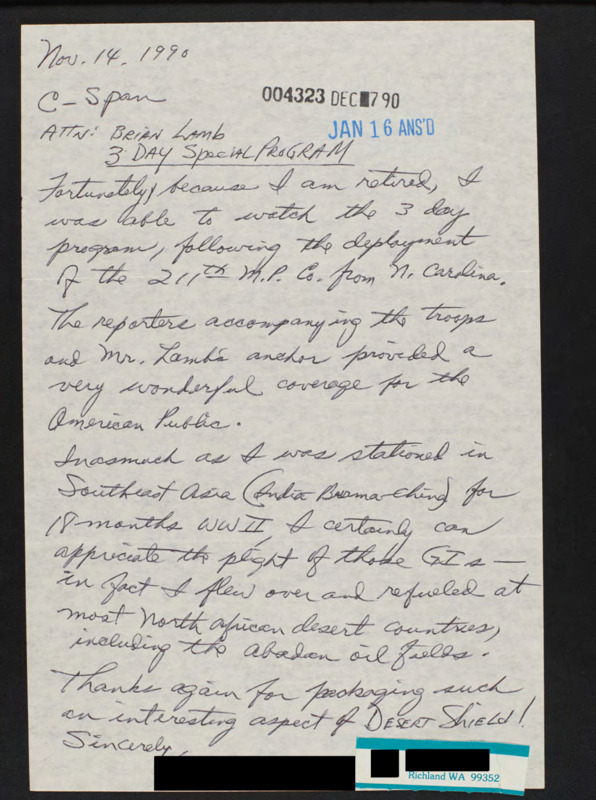 Nov. 14. 1990
004323 DEC 7 90
C-Span
JAN 16 ANS'D
ATTN: BRIAN LAMB
3 DAY SPECIAL PROGRAM
Fortunately, because I am retired, I
was able to watch the 3 day
program, following the deployment
of the 211th M.P. Co. from N. Carolina.
The reporters accompanying the troops
and Mr. Lamb's anchor provided a
very wonderful coverage for the
American Public.
Inasmuch as I was stationed in
Southeast Asia (India Burma-China) for
18-months WWII, I certainly can
appriciate the plight of those GIs —
in fact I flew over and refueled at
most North african desert countries,
including the Abadan oil fields.
Thanks again for packaging such
an interesting aspect of DESERT SHIELD!
Sincerely,
Richland WA 99352